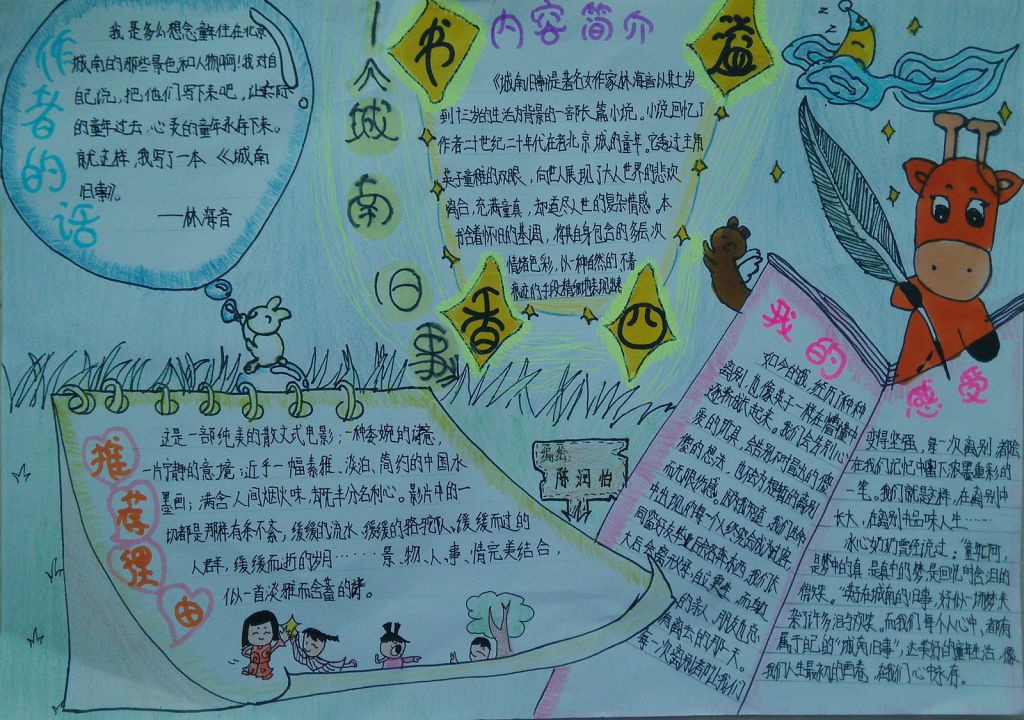 作者的话
我是多么想念童年住在北京
城南的那些景色和人物啊!我对自
自己说,把他们写下来吧,让实际
的童年过去,心灵的童年永存下来。
就这样,我写了一本《城南
旧事》。
——林海音
城南旧事
书
益
香
四
内容简介
《城南旧事》是著名女作家林海音以其七岁
到十三岁的生活为背景的一部长篇小说。小说回忆了
作者二十世纪二十年代在老北京城的童年。它透过主角
英子童稚的双眼,向世人展现了大人世界的悲欢
离合,充满童真,却道尽人世的复杂情感。本
书含着怀旧的基调,将其自身包含的多层次
情绪色彩,以一种自然的不着
痕迹的手段精细地表现出来
推荐理由
这是一部纯美的散文式电影:一种委婉的诗意,
一片宁静的意境;近乎一幅素雅、淡泊、简约的中国水
墨画;满含人间烟火味,却无半分名利心。影片中的一
切都是那样有条不紊,缓缓的流水、缓缓的骆驼队、缓缓而过的
人群,缓缓而逝的岁月……景、物、人、事、情完美结合,
似一首淡雅而含蓄的诗。
编绘:
陈润伯
我的
感受
如今的我,经历了种种
离别,也像英子一样在懵懂中
逐渐成长起来。我们会为别心
爱的玩具,会告别对最初的傻
傻的想法,也会为短暂的离别
而无限伤感。因为我知道,我们生命
书出现的每一个人终究会成为过客,
同窗好友毕业后会各奔东西,我们长
大后会离开父母,自立更生,而
的亲人、朋友也总
有离去的那一天。
每一次离别都让我们
变得坚强,每一次离别都会
在我们记忆中留下浓墨重彩的
一笔。我们就是这样,在离别中
长大,在离别中品味人生……
冰心奶奶曾经说过:"童年啊,
是梦中的真,是真中的梦,是回忆时含泪的
微笑。"英子在城南的旧事,好似一场梦,夹
杂了许多泪与欢笑。而我们每个人心中,都有
属于自己的"城南旧事",这美好的童年生活,像
我们人生最初的画卷,在我们心中永存。